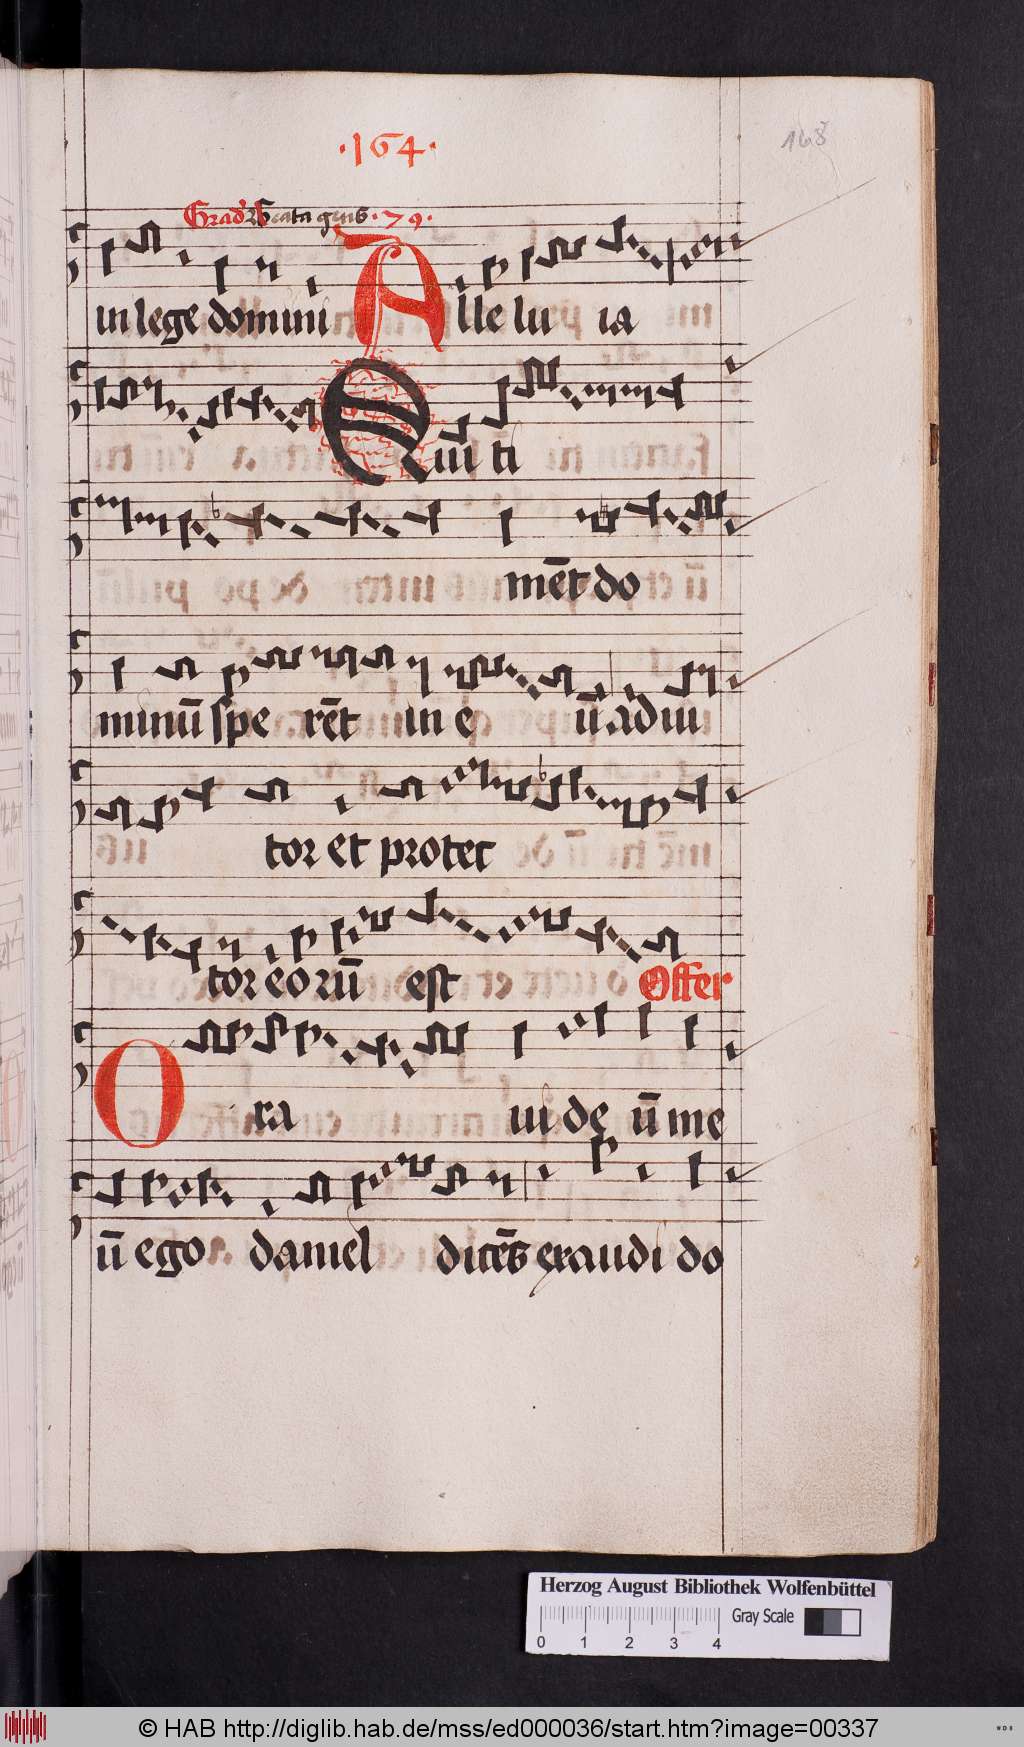 ·164·
168
Grad' Beata gens · 79 ·
in lege domini Alle lu ia
Qui ti
mēt do
minū spe rēt in e ū adiu
tor et protec
tor eorū est Offer
Ora ui de ū me
ū ego daniel dicēs exaudi do
Herzog August Bibliothek Wolfenbüttel
Gray Scale
0 1 2 3 4
© HAB http://diglib.hab.de/mss/ed000036/start.htm?image=00337